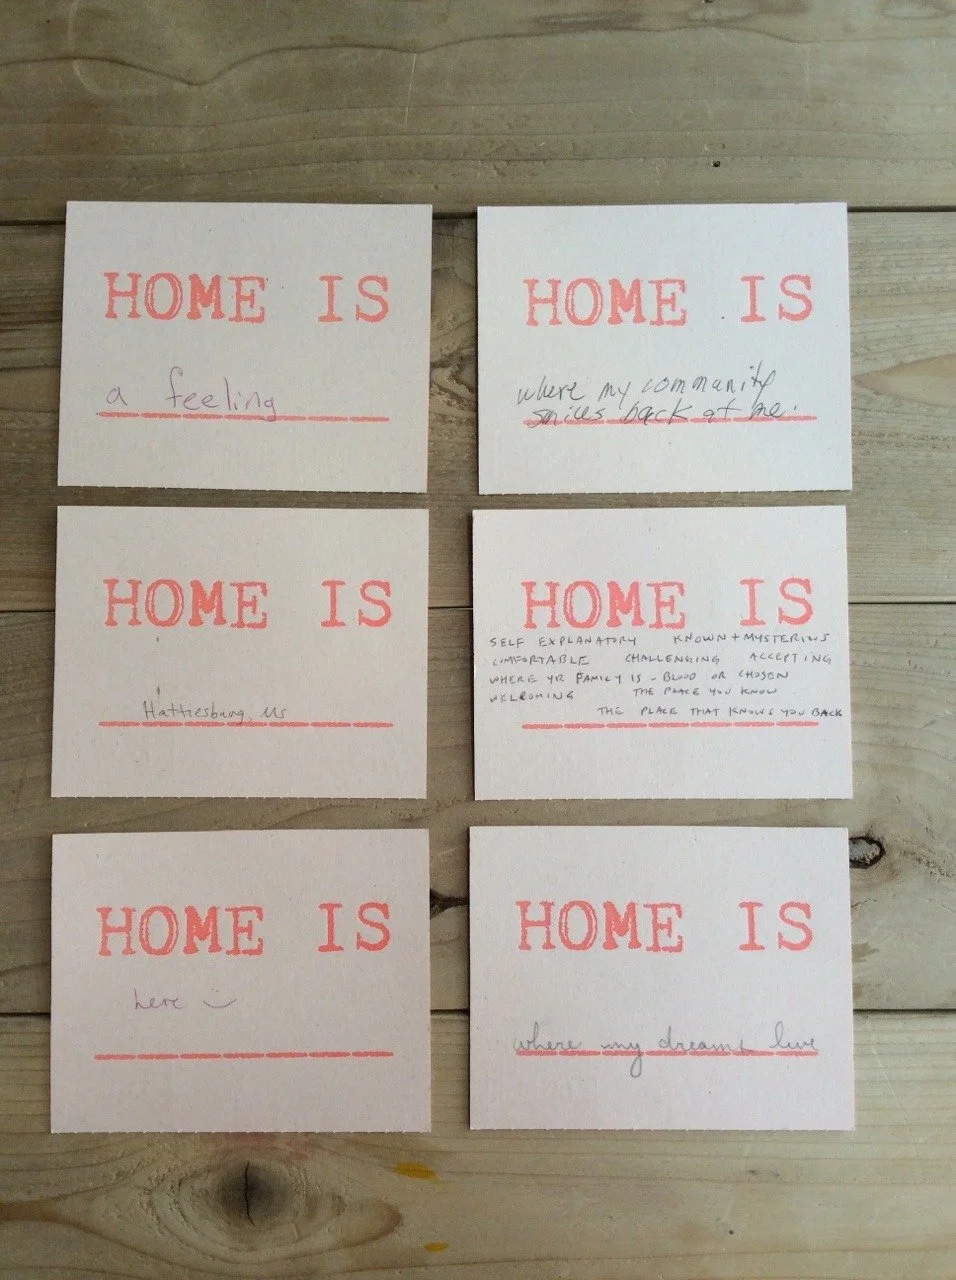 HOME IS
a feeling
HOME IS
where my community
smiles back at me.
HOME IS
Hattiesburg, Ms
HOME IS
SELF EXPLANATORY KNOWN + MYSTERIOUS
COMFORTABLE CHALLENGING ACCEPTING
WHERE YR FAMILY IS - BLOOD OR CHOSEN
WELCOMING THE PLACE YOU KNOW
THE PLACE THAT KNOWS YOU BACK
HOME IS
here :)
HOME IS
where my dreams live